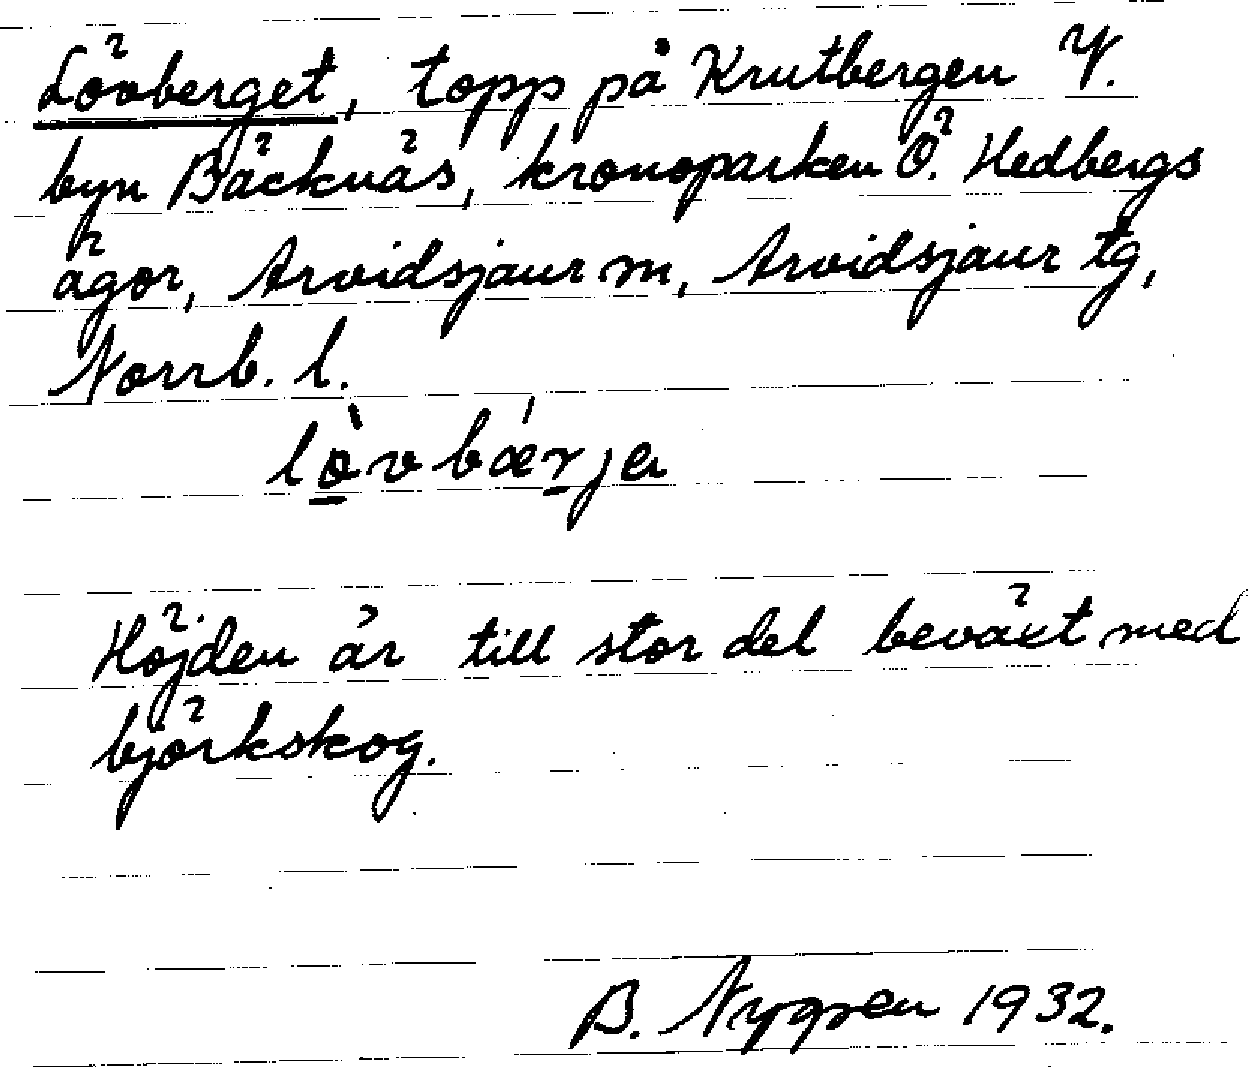 Lövberget, topp på Krutbergen V.
byn Bäcknäs, kronoparken Ö. Hedbergs
ägor, Arvidsjaur m, Arvidsjaur tg,
Norrb. l.
lò̱vbǽṟja
Höjden är till stor del beväxt med
björkskog.
B. Nygren 1932.